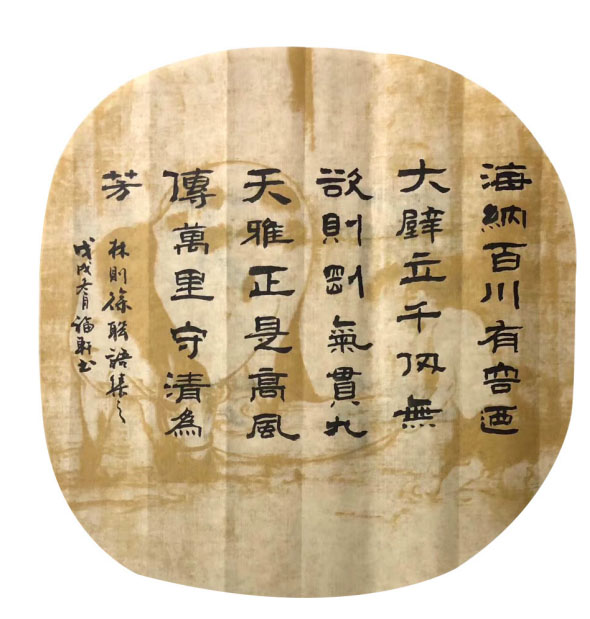 海納百川有容迺
大壁立千仞無
欲則剛氣貫九
天雅正是高風
傳萬里守清為
芳
林則徐聯語集之
戊戌冬月軒书